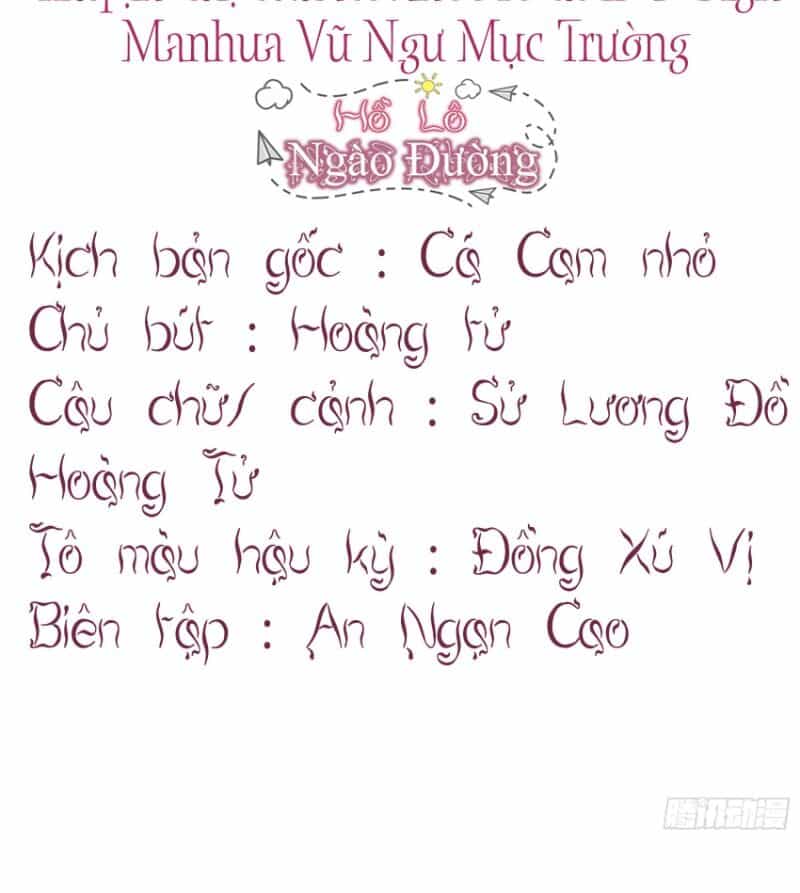 Manhua Vũ Ngư Mục Trường
Hồ Lô
Ngào Đường
Kịch bản gốc : Cá Cam nhỏ
Chủ bút : Hoàng tử
Câu chữ/ cảnh : Sử Lương Đồ
Hoàng Tử
Tô màu hậu kỳ : Đồng Xú Vị
Biên tập : An Ngạn Cao
腾讯动漫